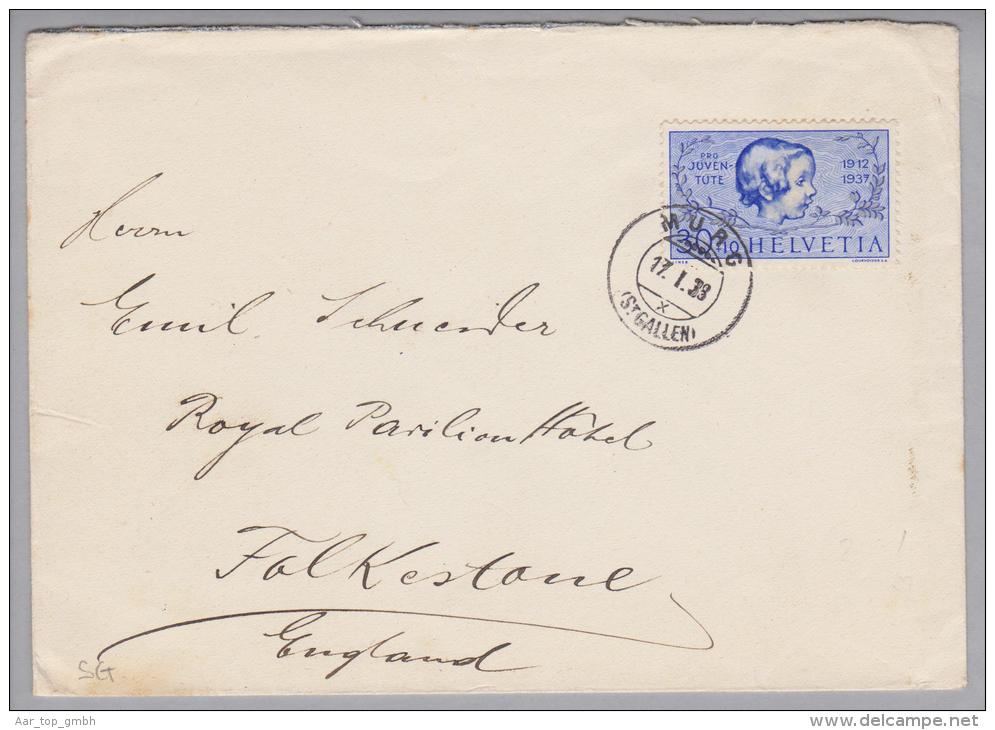 PRO
JUVEN-
TUTE
1912
1937
30+10 HELVETIA
COURVOISIER S.A.
MURG
17. I. 38
X
(ST GALLEN)
Herrn
Emil Schneider
Royal Pavilion Hôtel
Folkestone
England
SG
Aar_top_gmbh
www.delcampe.net